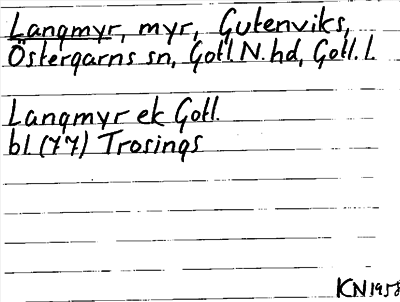 Langmyr, myr, Gutenviks,
Östergarns sn, Gotl. N. hd, Gotl. L
Langmyr ek Gotl.
bl (77) Trosings
KN 1958